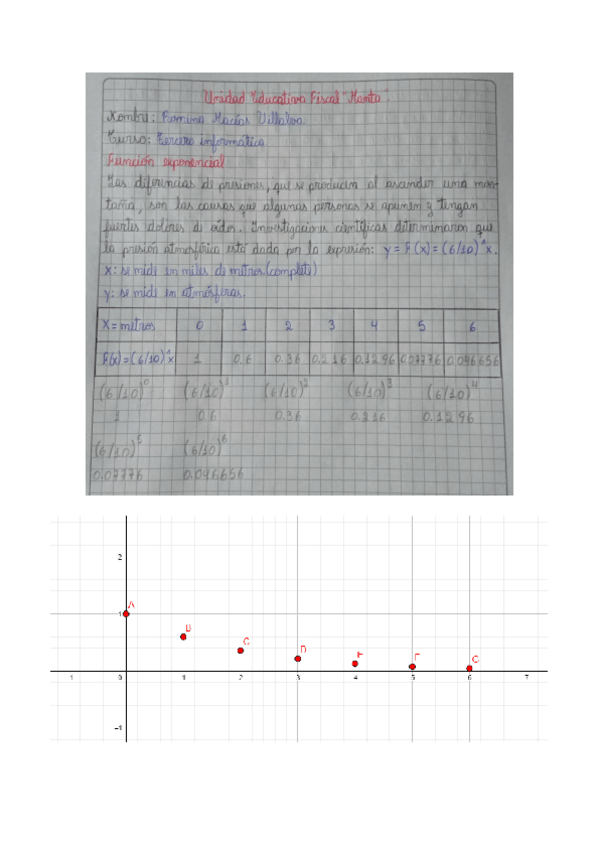 Unidad Educativa Fiscal "Manta".
Nombre: Romina Macías Villalva.
Curso: Tercero informática
Función exponencial
Las diferencias de presiones, que se producen al ascender una mon-
taña, son las causas que algunas personas se apunen y tengan
fuertes dolores de oídos. Investigaciones científicas determinaron que
la presión atmosférica está dada por la expresión: y = F(x) = (6/10)^x.
x: se mide en miles de metros.(complete)
y: se mide en atmósferas.
X = metros 0 1 2 3 4 5 6
F(x)=(6/10)^x 1 0.6 0.36 0.216 0.1296 0.07776 0.046656
(6/10)^0 (6/10)^1 (6/10)^2 (6/10)^3 (6/10)^4
1 0.6 0.36 0.216 0.1296
(6/10)^5 (6/10)^6
0.07776 0.046656
2
1 A
B
C
D
E
F
G
-1 0 1 2 3 4 5 6 7
-1